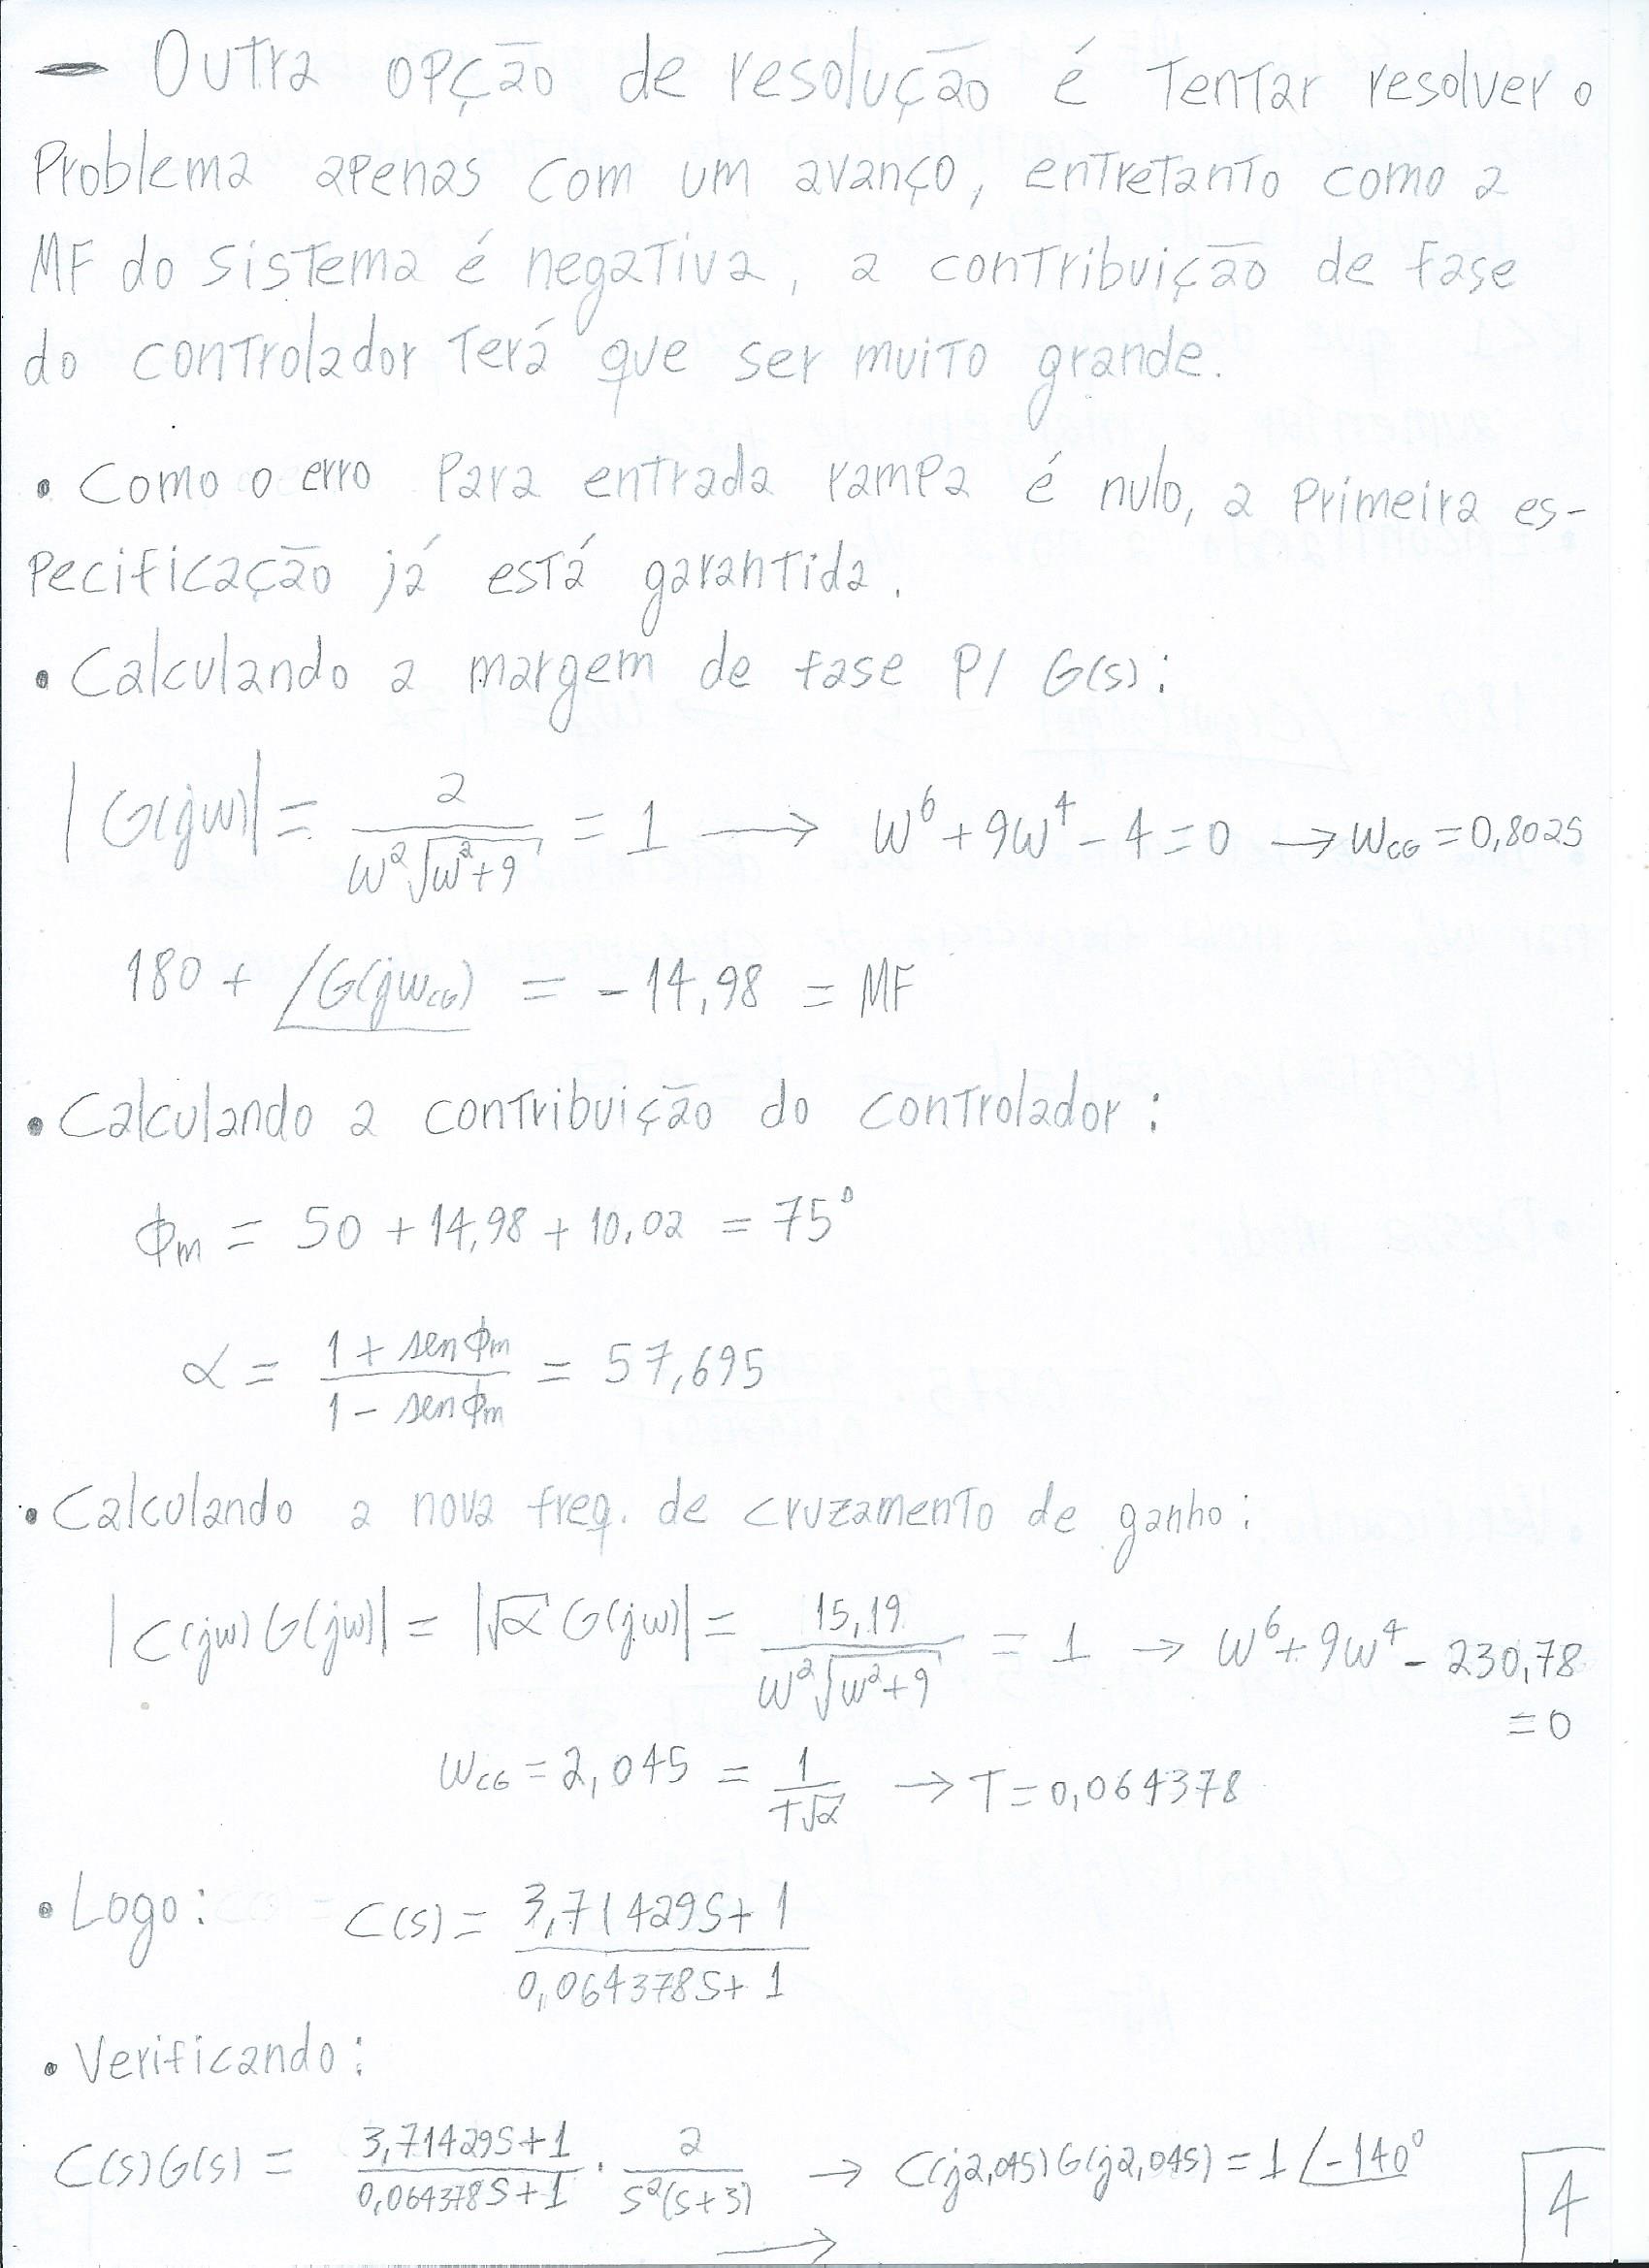 — Outra opção de resolução é tentar resolver o
problema apenas com um avanço, entretanto como a
MF do sistema é negativa, a contribuição de fase
do controlador terá que ser muito grande.
• Como o erro para entrada rampa é nulo, a primeira es-
pecificação já está garantida.
• Calculando a margem de fase p/ G(s):
|G(jw)| = 2 / (w²√(w²+9)) = 1 → w⁶ + 9w⁴ - 4 = 0 → w_CG = 0,8025
180 + ∠G(jw_CG) = -14,98 = MF
• Calculando a contribuição do controlador:
ɸm = 50 + 14,98 + 10,02 = 75°
α = (1 + sen ɸm) / (1 - sen ɸm) = 57,695
• Calculando a nova freq. de cruzamento de ganho:
|C(jw) G(jw)| = |√α G(jw)| = 15,19 / (w²√(w²+9)) = 1 → w⁶ + 9w⁴ - 230,78
= 0
w_CG = 2,045 = 1 / (T√α) → T = 0,064378
• Logo: C(s) = (3,71429s + 1) / (0,064378s + 1)
• Verificando:
C(s)G(s) = (3,71429s + 1) / (0,064378s + 1) · 2 / (s²(s+3)) → C(j2,045)G(j2,045) = 1 ∠-140°
→
4